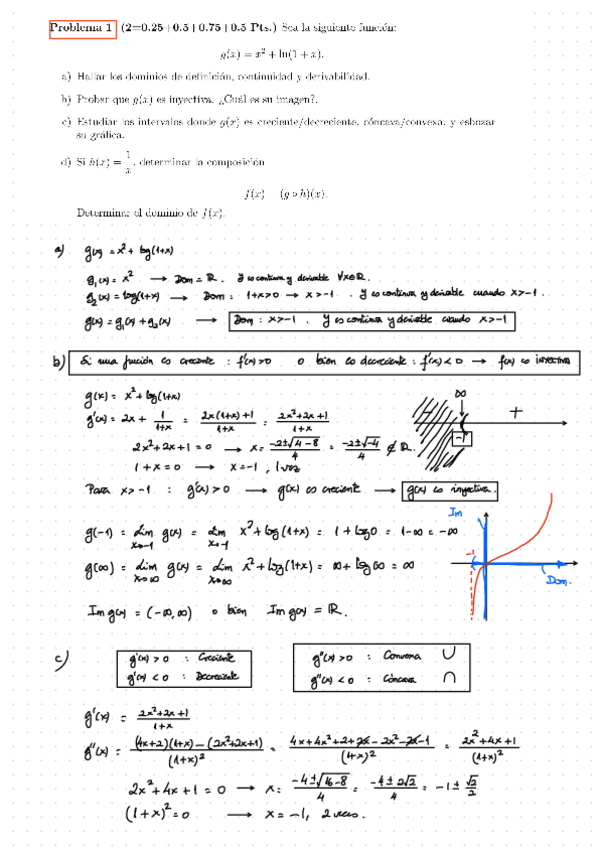 Problema 1 (2=0.25+0.5+0.75+0.5 Pts.) Sea la siguiente función:
g(x) = x² + ln(1 + x).
a) Hallar los dominios de definición, continuidad y derivabilidad.
b) Probar que g(x) es inyectiva. ¿Cuál es su imagen?.
c) Estudiar los intervalos donde g(x) es creciente/decreciente, cóncava/convexa, y esbozar
su gráfica.
d) Si h(x) = 1/x, determinar la composición
f(x) = (g ∘ h)(x).
Determinar el dominio de f(x).
a) g(x) = x² + log(1+x)
g₁(x) = x² → Dom = ℝ. Y es continua y derivable ∀x∈ℝ.
g₂(x) = log(1+x) → Dom : 1+x>0 → x>-1 . Y es continua y derivable cuando x>-1 .
g(x) = g₁(x) + g₂(x) → Dom : x>-1 . Y es continua y derivable cuando x>-1
b) Si una función es creciente : f'(x)>0 o bien es decreciente : f'(x)<0 → f(x) es inyectiva
g(x) = x² + log(1+x)
g'(x) = 2x + 1/(1+x) = (2x(1+x)+1)/(1+x) = (2x²+2x+1)/(1+x)
∞
+
-1
2x²+2x+1 = 0 → x = (-2±√(4-8))/4 = (-2±√-4)/4 ∉ ℝ.
1+x = 0 → x = -1 , 1 vez
Para x>-1 : g'(x)>0 → g(x) es creciente → g(x) es inyectiva.
Im
g(-1) = lim x→-1 g(x) = lim x→-1 x² + log(1+x) = 1 + log 0 = 1-∞ = -∞
-1
g(∞) = lim x→∞ g(x) = lim x→∞ x² + log(1+x) = ∞ + log ∞ = ∞
Dom.
Im g(x) = (-∞,∞) o bien Im g(x) = ℝ.
c) g'(x) > 0 : Creciente
g'(x) < 0 : Decreciente
g''(x) > 0 : Convexa ∪
g''(x) < 0 : Cóncava ∩
g'(x) = (2x²+2x+1)/(1+x)
g''(x) = ((4x+2)(1+x) - (2x²+2x+1))/(1+x)² = (4x+4x²+2+2x-2x²-2x-1)/(1+x)² = (2x²+4x+1)/(1+x)²
2x²+4x+1 = 0 → x = (-4±√(16-8))/4 = (-4±2√2)/4 = -1 ± √2/2
(1+x)² = 0 → x = -1, 2 veces.